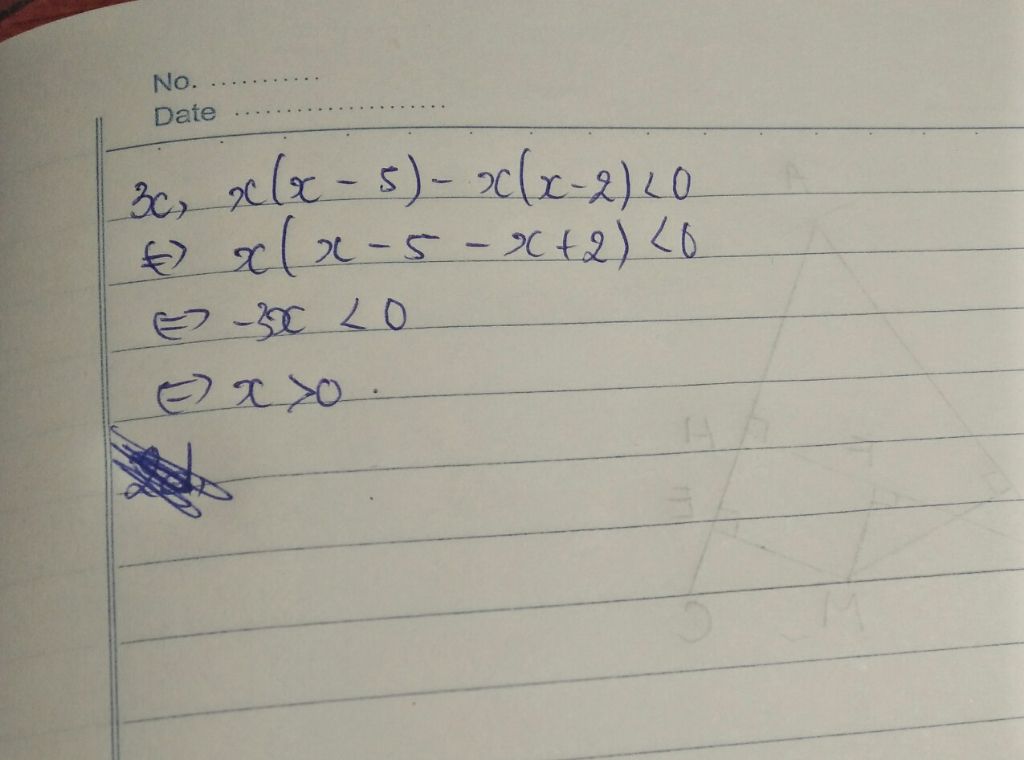 No. ...........
Date .....................
3c, x(x - 5) - x(x-2) < 0
⇔ x(x - 5 - x + 2) < 0
⇔ -3x < 0
⇔ x > 0 .
A
H
E
C M